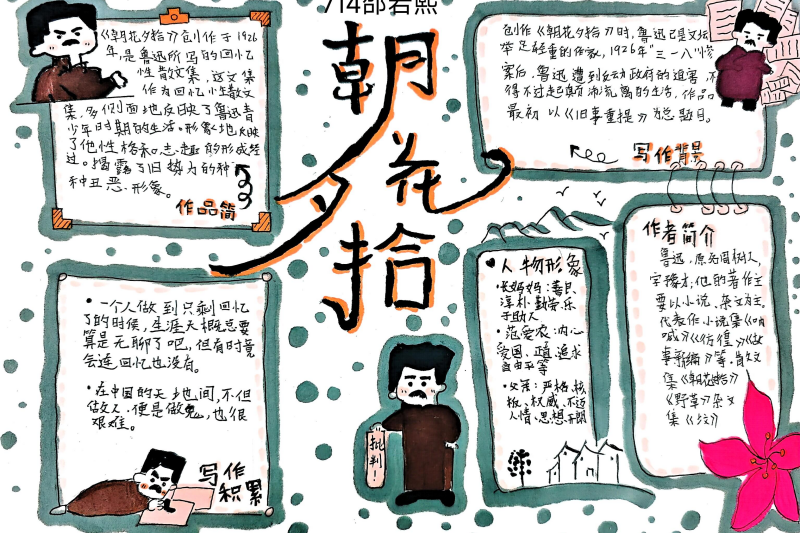 714邵若熙
朝花夕拾
《朝花夕拾》创作于1926
年,是鲁迅所写的回忆
性散文集,这文集
作为回忆性散文
集,多侧面地反映了鲁迅青
少年时期的生活。形象地反映
了他性格和志趣的形成经
过。揭露了旧势力的种
种丑恶形象。
作品简
创作《朝花夕拾》时,鲁迅已是文坛
举足轻重的作家,1926年"三一八"惨
案后,鲁迅遭到反动政府的迫害,不
得不过起颠沛流离的生活,作品
最初以《旧事重提》为总题目。
写作背景
•一个人做到只剩回忆
了的时候,生涯大概总要
算是无聊了吧,但有时竟
会连回忆也没有。
•在中国的天地间,不但
做人,便是做鬼,也很
艰难。
写作
积累
批判!
人物形象
•长妈妈:善良、
淳朴、勤劳、乐
于助人
•范爱农:内心
爱国、正直、追求
自由平等
•父亲:严格、核
板、权威、不近
人情、思想
作者简介
鲁迅,原名周树人,
字豫才,他的著作主
要以小说、杂文为主,
代表作小说集《呐
喊》《彷徨》《故
事新编》等。散文
集《朝花夕拾》
《野草》杂文
集《《坟》